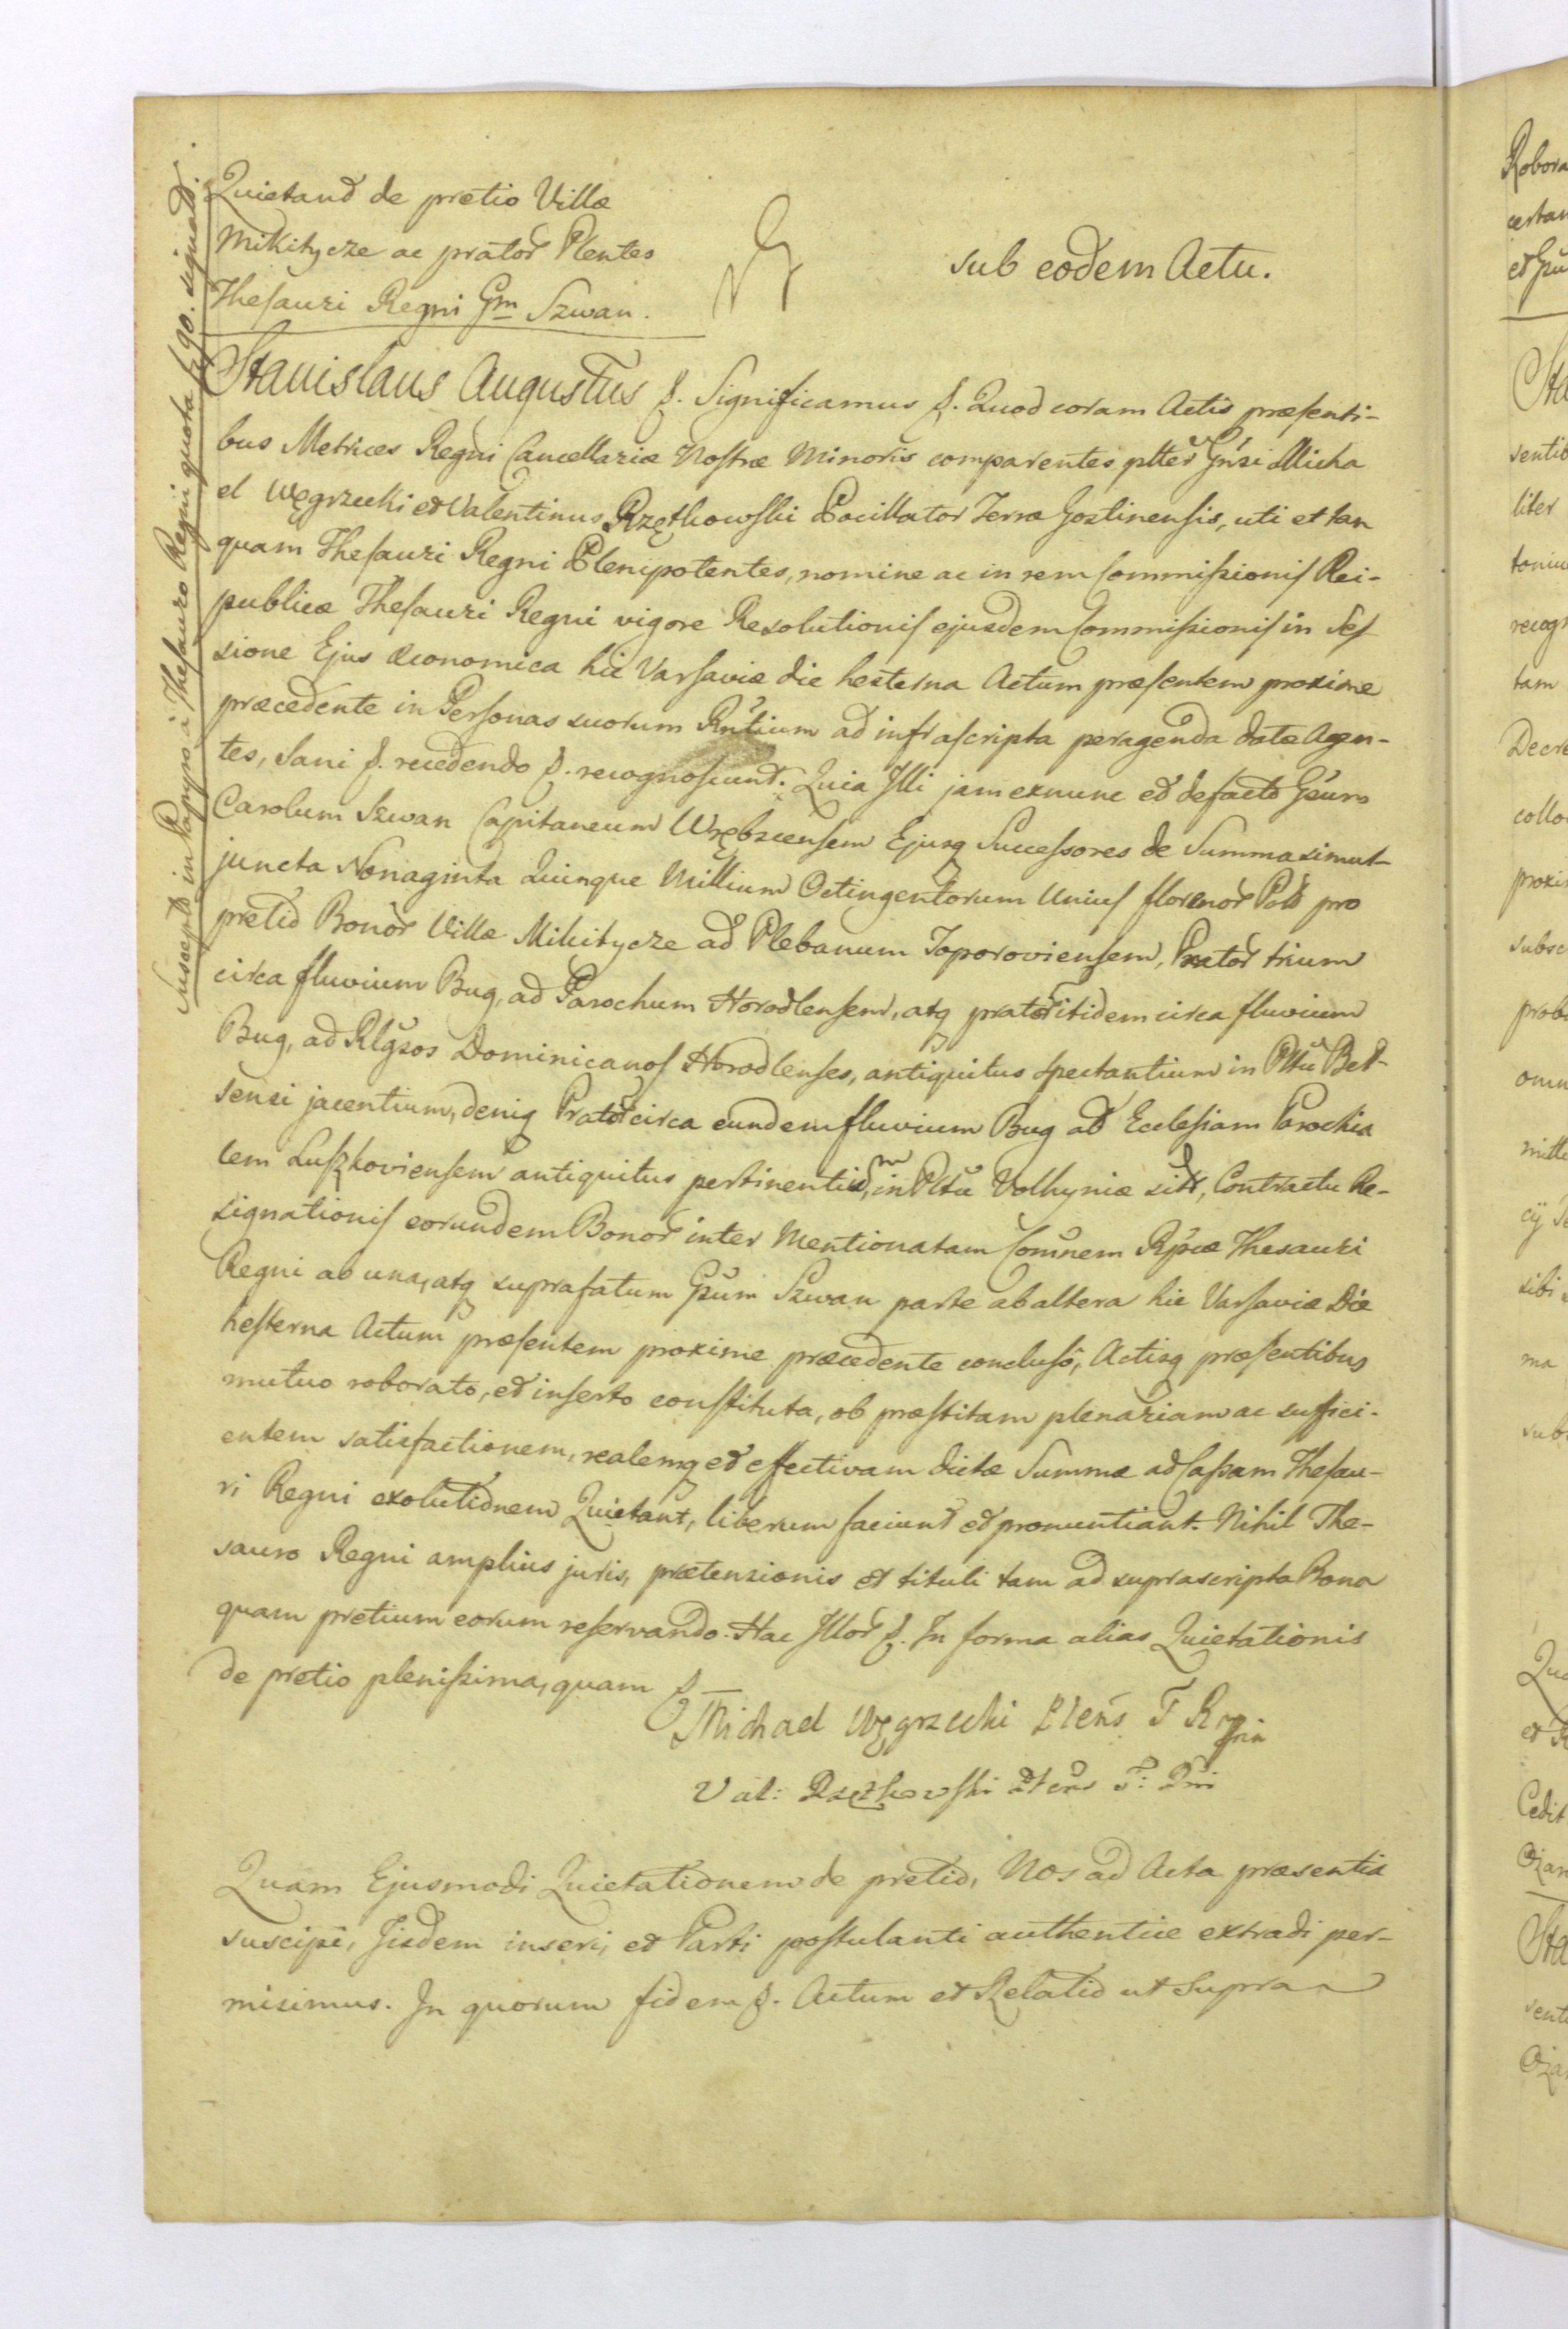 Quietand de pretio Villæ
Mikitycze ac prator Plentes
Thesauri Regni Gm Szwan.
sub eodem Actu.
Suscepta in Papyro à Thesauro Regni quarta f 90. signata.
Stanislaus Augustus f. Significamus f. Quod coram Actis præsenti-
bus Metrices Regni Cancellariæ Nostræ Minoris comparentes pltter Gnsi Micha
el Węgrzecki et Valentinus Rzętkowski Pocillator Terræ Gostinensis, uti et tan
quam Thesauri Regni Plenipotentes, nomine ac in rem Commissionis Rei-
publicæ Thesauri Regni vigore Resolutionis ejusdem Commissionis in Ses
sione Ejus œconomica hic Varsaviæ die hesterna Actum præsentem proxime
præcedente in Personas suorum Rntium ad infrascripta peragenda datæ Agen-
tes, Sani f. recedendo f. recognoscunt. Quia Illi jam exnunc et defacto Gsum
Carolum Szwan Capitaneum Wrębscensem Ejusq Successores de Summa simul-
juncta Nonaginta Quinque Millium Octingentorum Unius florenor Pol pro
pretio Bonor Villæ Mikitycze ad Plebanum Toporoviensem, Prator trium
circa fluvium Bug, ad Parochum Horodlensem, atq prator itidem circa fluvium
Bug, ad Rlgsos Dominicanos Horodlenses, antiquitus spectantium in Pltu Bel-
sensi jacentium, deniq Prator circa eundem fluvium Bug ad Ecclesiam Parochia
lem Luszkoviensem antiquitus pertinentium, in Pltu Volhyniæ sit, Contractu Re-
signationis eorundem Bonor inter Mentionatam Comnem Rpcæ Thesauri
Regni ab una, atq suprafatum Gsum Szwan parte ab altera hic Varsaviæ Die
hesterna Actum præsentem proxime præcedente concluso, Actisq præsentibus
mutuo roborato, et inserto constituta, ob præstitam plenariam ac suffici-
entem satisfactionem, realemq et effectivam dictæ Summæ ad Cassam Thesau-
ri Regni exolutionem Quietant, liberum faciunt et pronuntiant. Nihil The-
sauro Regni amplius juris, prætensionis et tituli tam ad suprascripta Bona
quam pretium eorum reservando. Hac Illor f. In forma alias Quietationis
de pretio plenissima, quam f
Michael Węgrzecki Plens T R
Val: Rzętkowski Plens T:
Quam Ejusmodi Quietationem de pretio, Nos ad Acta præsentia
suscipi, Iisdem inseri, et Parti postulanti authentice extradi per-
misimus. In quorum fidem f. Actum et Relatio ut Supra